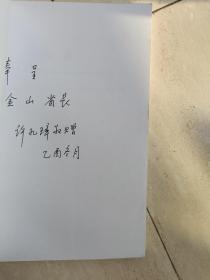 奉呈
金山省长
许孔璋敬赠
乙酉冬月